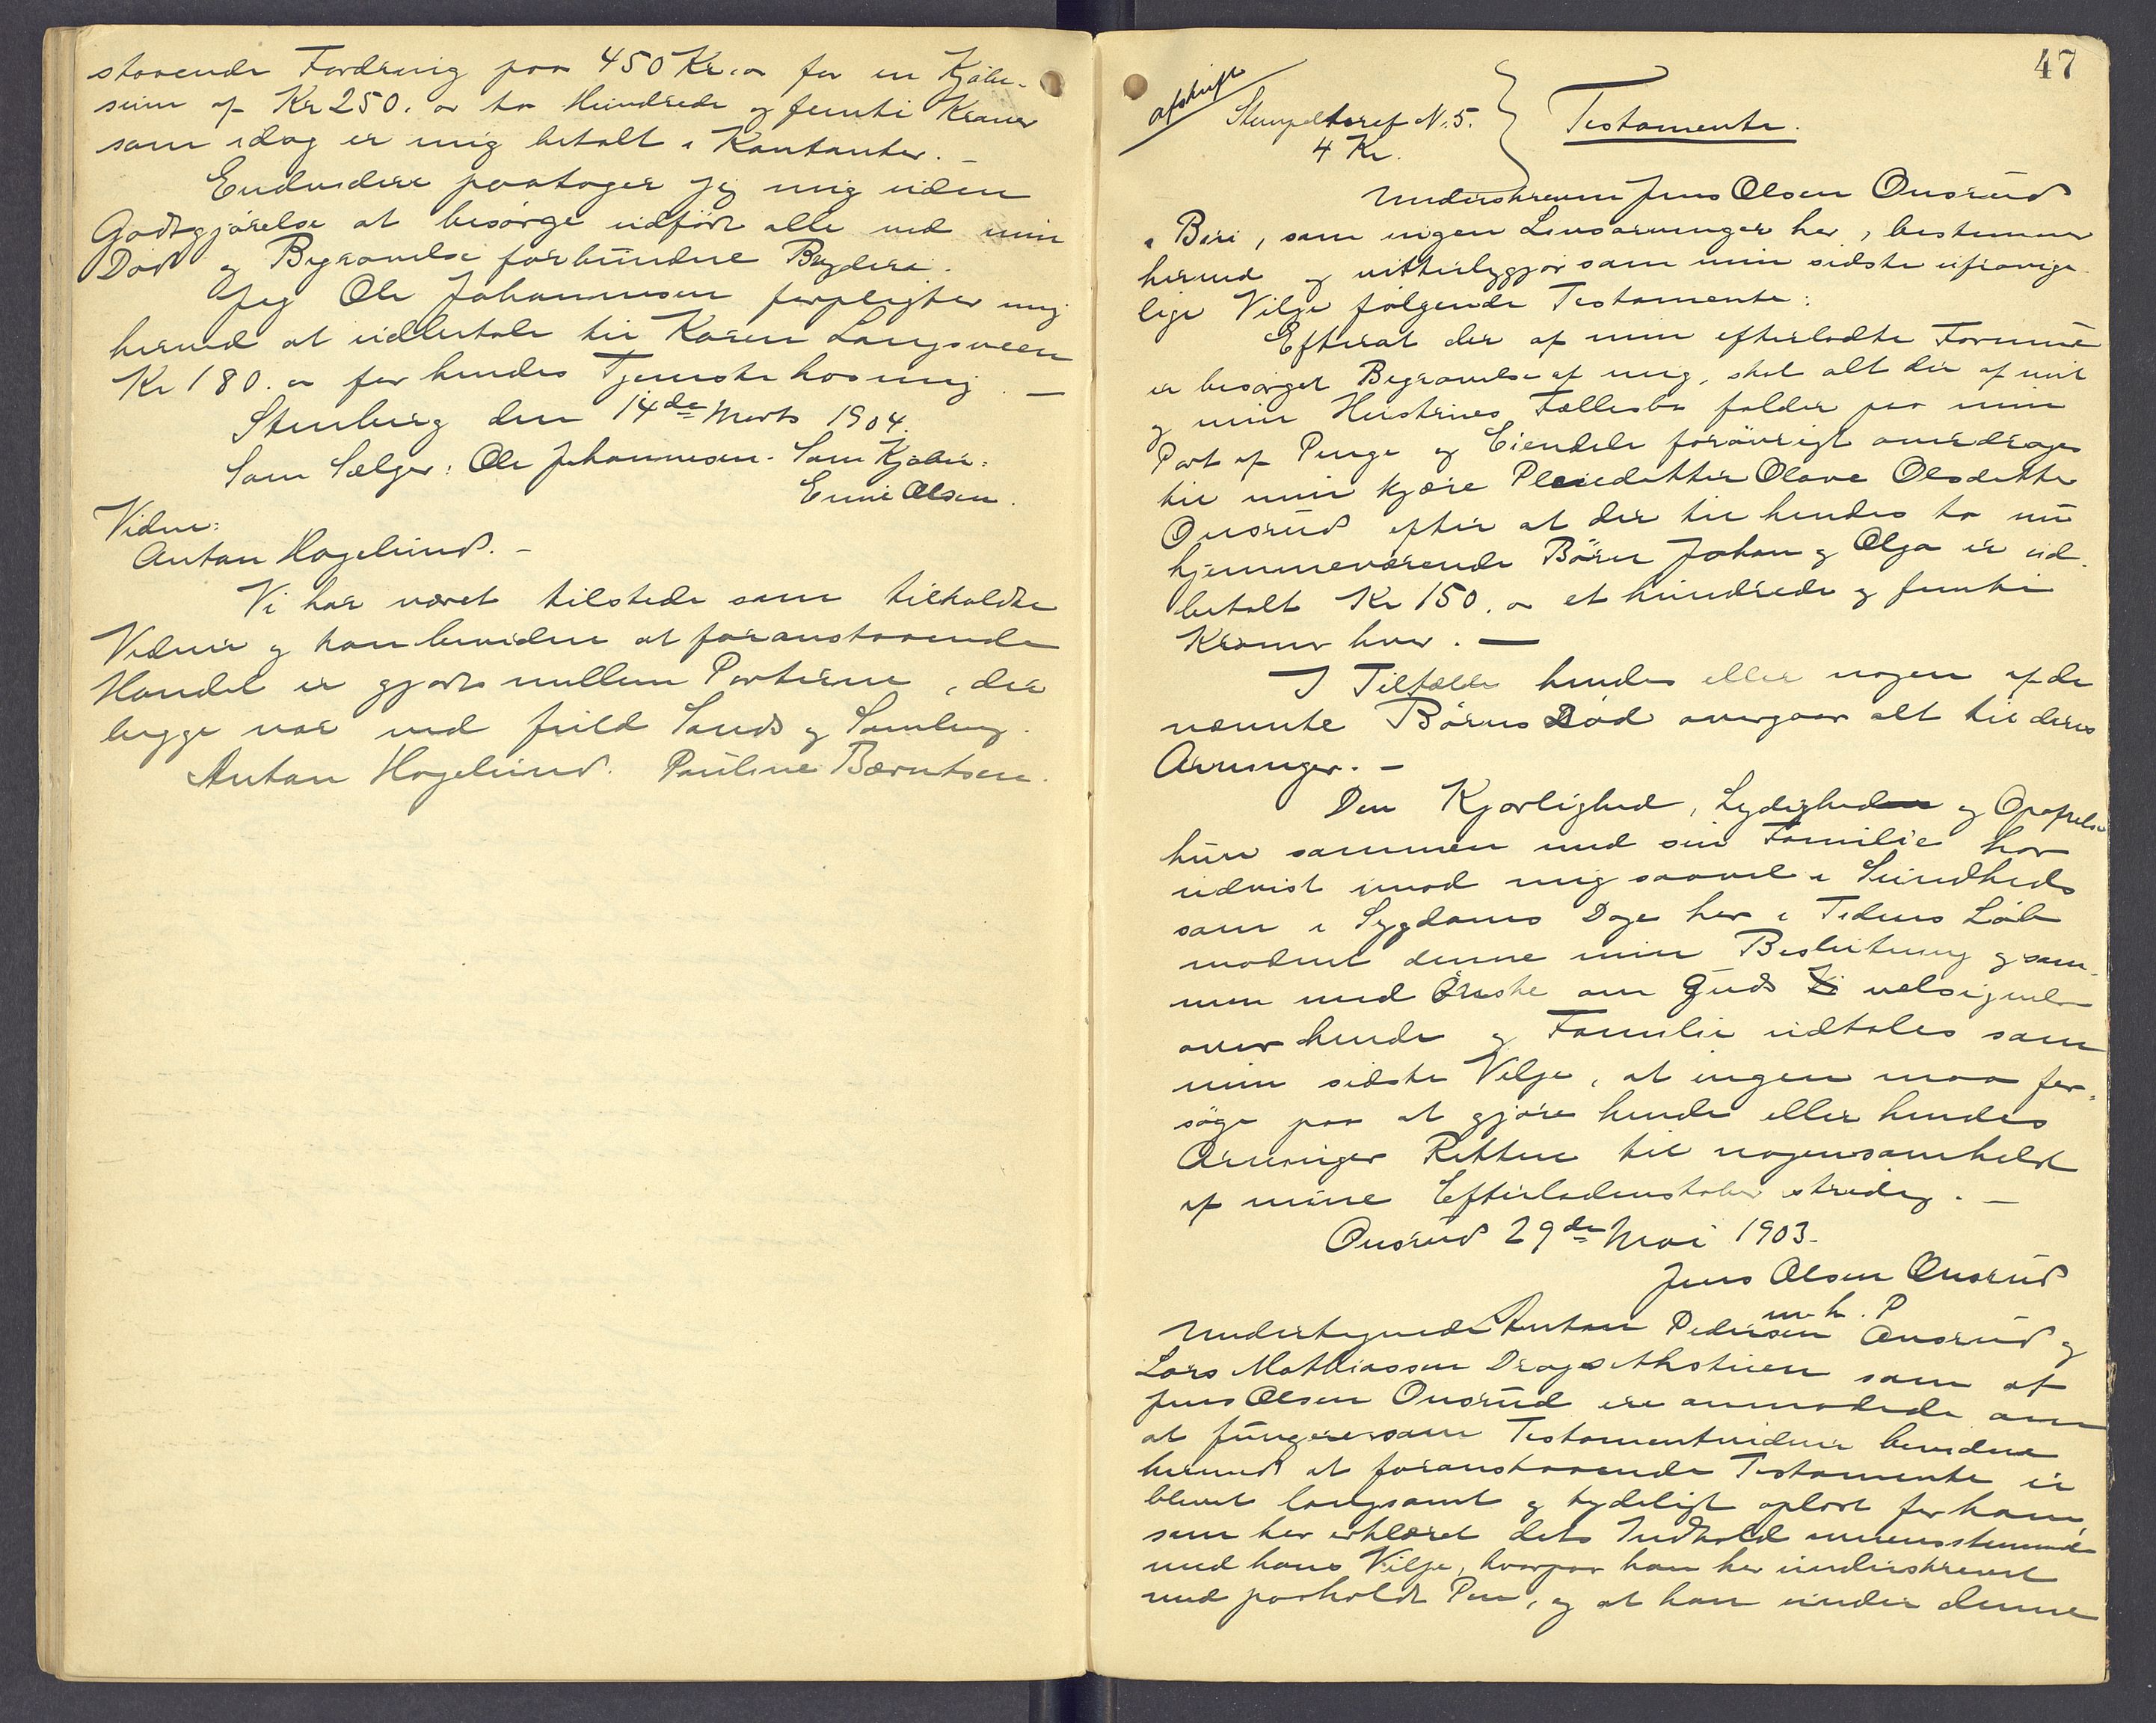 staaende Fordring paa 450 Kr. or for en Kjøbe-
sum af Kr 250. or to Hundrede og femti Kroner
som idag er mig betalt i Kontanter. -
Endvidere paatager jeg mig uden
Godtgjørelse at besørge udført alle ved min
Død og Begravelse forbundne Byderi.
Jeg Ole Johannesen forpligter mig
herved at udbetale til Karen Langsveen
Kr 180. or for hendes Tjeneste hos mig. -
Stenberg den 14de Marts 1904.
Som Sælger: Ole Johannesen. Som Kjøber:
Emie Olsen.
Vidne:
Anton Hagelund. -
Vi har været tilstede som tilkaldte
Vidner og kan bevidne at foranstaaende
Handel er gjort mellem Parterne, der
begge var ved fuld Sands og Samling.
Anton Hagelund. Pauline Bærntsen.
47
afskrift
Stempeltaxef N. 5.
4 Kr.
Testamente.
Underskrevne Jens Olsen Onsrud
i Biri, som ingen Livsarvinger har, bestemmer
herved og vitterliggjør som min sidste ufravige-
lige Vilje følgende Testamente:
Efterat der af min efterladte Formue
er besørget Begravelse af mig, skal alt der af mit
og min Hustrues Fællesbo falder paa min
Part af Penge og Eiendele forøvrigt overdrages
til min kjære Pleiedatter Olave Olsdatter
Onsrud efter at der til hendes to nu
hjemmeværende Børn Johan og Olga er ud-
betalt Kr 150. or et hundrede og femti
Kroner hver. -
I Tilfælde hendes eller nogen af de
nævnte Børns Død overgaar alt til deres
Arvinger. -
Den Kjærlighed, Lydighed og Opofrelse
hun sammen med sin Familie har
udvist imod mig saavel i Sundheds
som i Sygdoms Dage har i Tidens Løb
modnet denne min Beslutning og sam-
men med Ønske om Guds velsignelse
over hende og Familie udtales som
min sidste Vilje, at ingen maa for-
søge paa at gjøre hende eller hendes
Arvinger Retten til nogensomhelst
af mine Efterladenskaber stridig. -
Onsrud 29de Mai 1903.
Jens Olsen Onsrud
m. h. P
Undertegnede Anton Pedersen Onsrud og
Lars Mathiassen Dragsethstuen som af
Jens Olsen Onsrud ere anmodede om
at fungere som Testamentvidner bevidne
herved at foranstaaende Testamente er
blevet langsomt og tydeligt oplæst for ham,
som har erklæret dets Indhold overensstemmende
med hans Vilje, hvorpaa han har underskrevet
med paaholdt Pen, og at han under denne